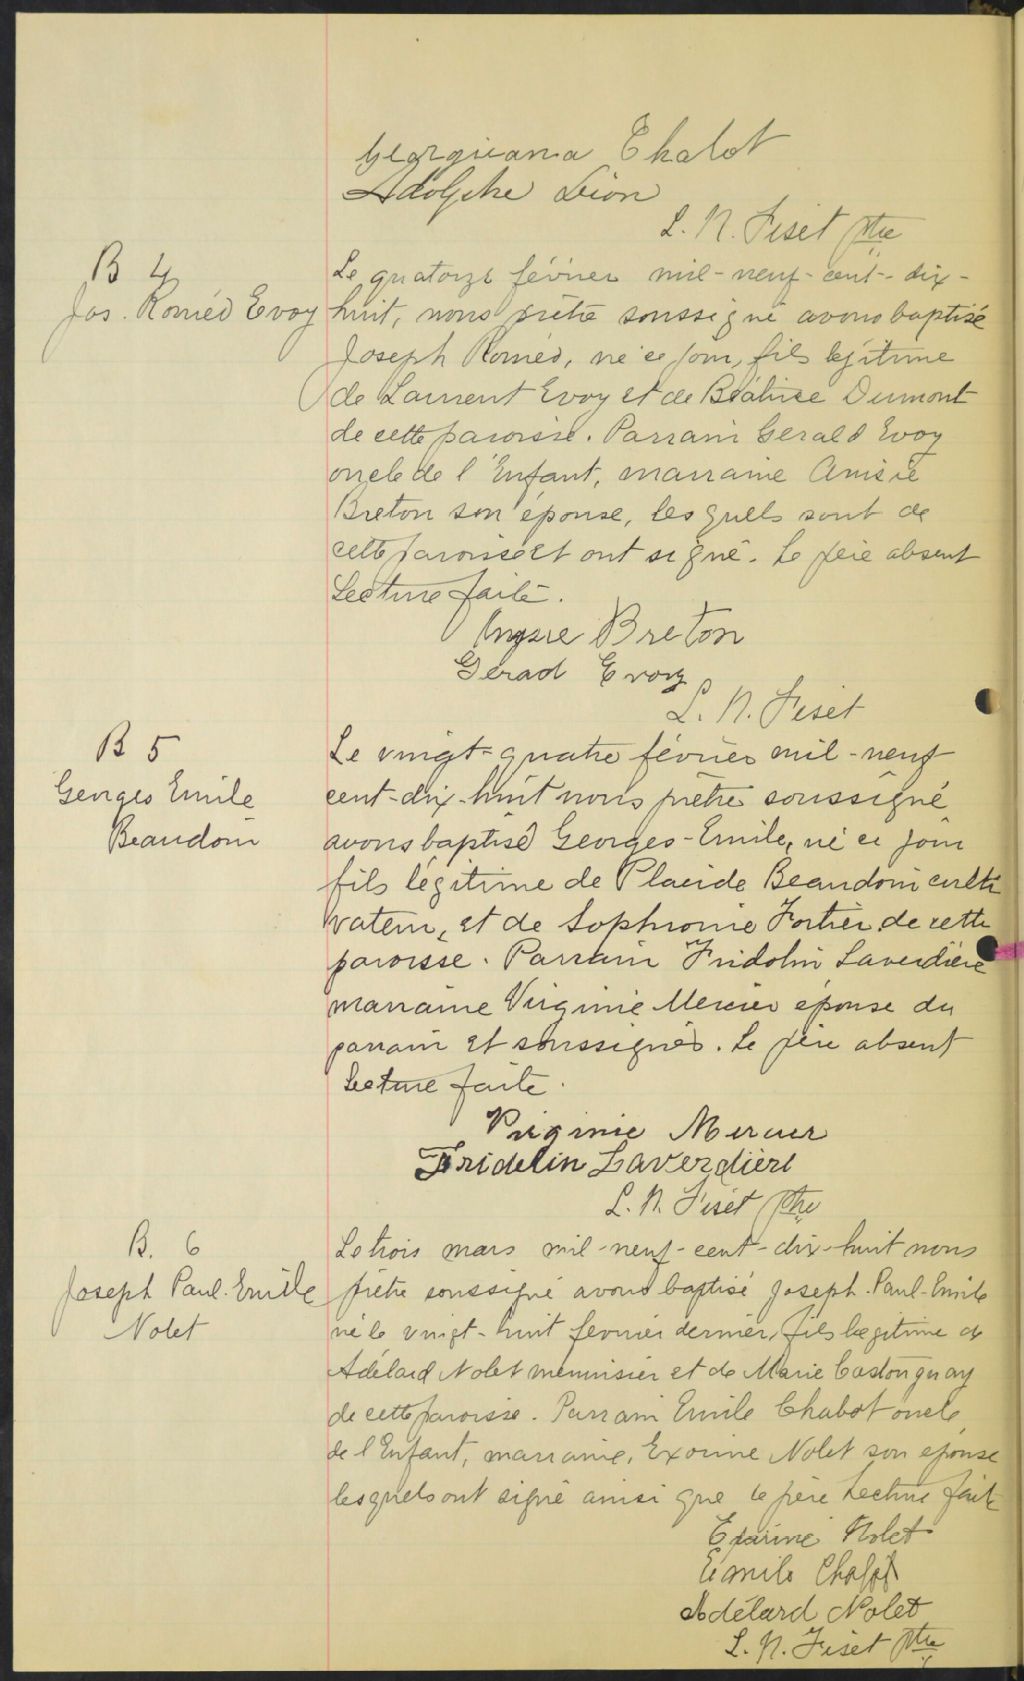 Georgieanna Chabot
Adolphe Dion
L. N. Fiset ptre
B 4
Jos. Roméo Evoy
Le quatorze février mil-neuf-cent-dix-
huit, nous prêtre soussigné avons baptisé
Joseph Roméo, né ce jour, fils légitime
de Laurent Evoy et de Béatrice Dumont
de cette paroisse. Parrain Gerald Evoy
oncle de l'Enfant, marraine
Breton son épouse, lesquels sont de
cette paroisse et ont signé. Le père absent
Lecture faite.
Breton
Gerad Evoy
L. N. Fiset
B 5
Georges Emile
Beaudoin
Le vingt-quatre février mil-neuf
cent-dix-huit nous prêtre soussigné
avons baptisé Georges-Emile, né ce jour
fils légitime de Placide Beaudoin culti
vateur, et de Sophronie Fortier de cette
paroisse. Parrain Fridolin Laverdière
marraine Virginie Mercier épouse du
parrain et soussignés. Le père absent
Lecture faite.
Virginie Mercier
Fridelin Laverdière
L. N. Fiset ptre
B. 6
Joseph Paul-Emile
Nolet
Le trois mars mil-neuf-cent-dix-huit nous
prêtre soussigné avons baptisé Joseph-Paul-Emile
né le vingt-huit février dernier, fils légitime de
Adélard Nolet menuisier et de Marie Castonguay
de cette paroisse. Parrain Emile Chabot oncle
de l'Enfant, marraine, Exorine Nolet son épouse
lesquels ont signé ainsi que le père Lecture faite
Exorine Nolet
Emile Chabot
Adélard Nolet
L. N. Fiset ptre